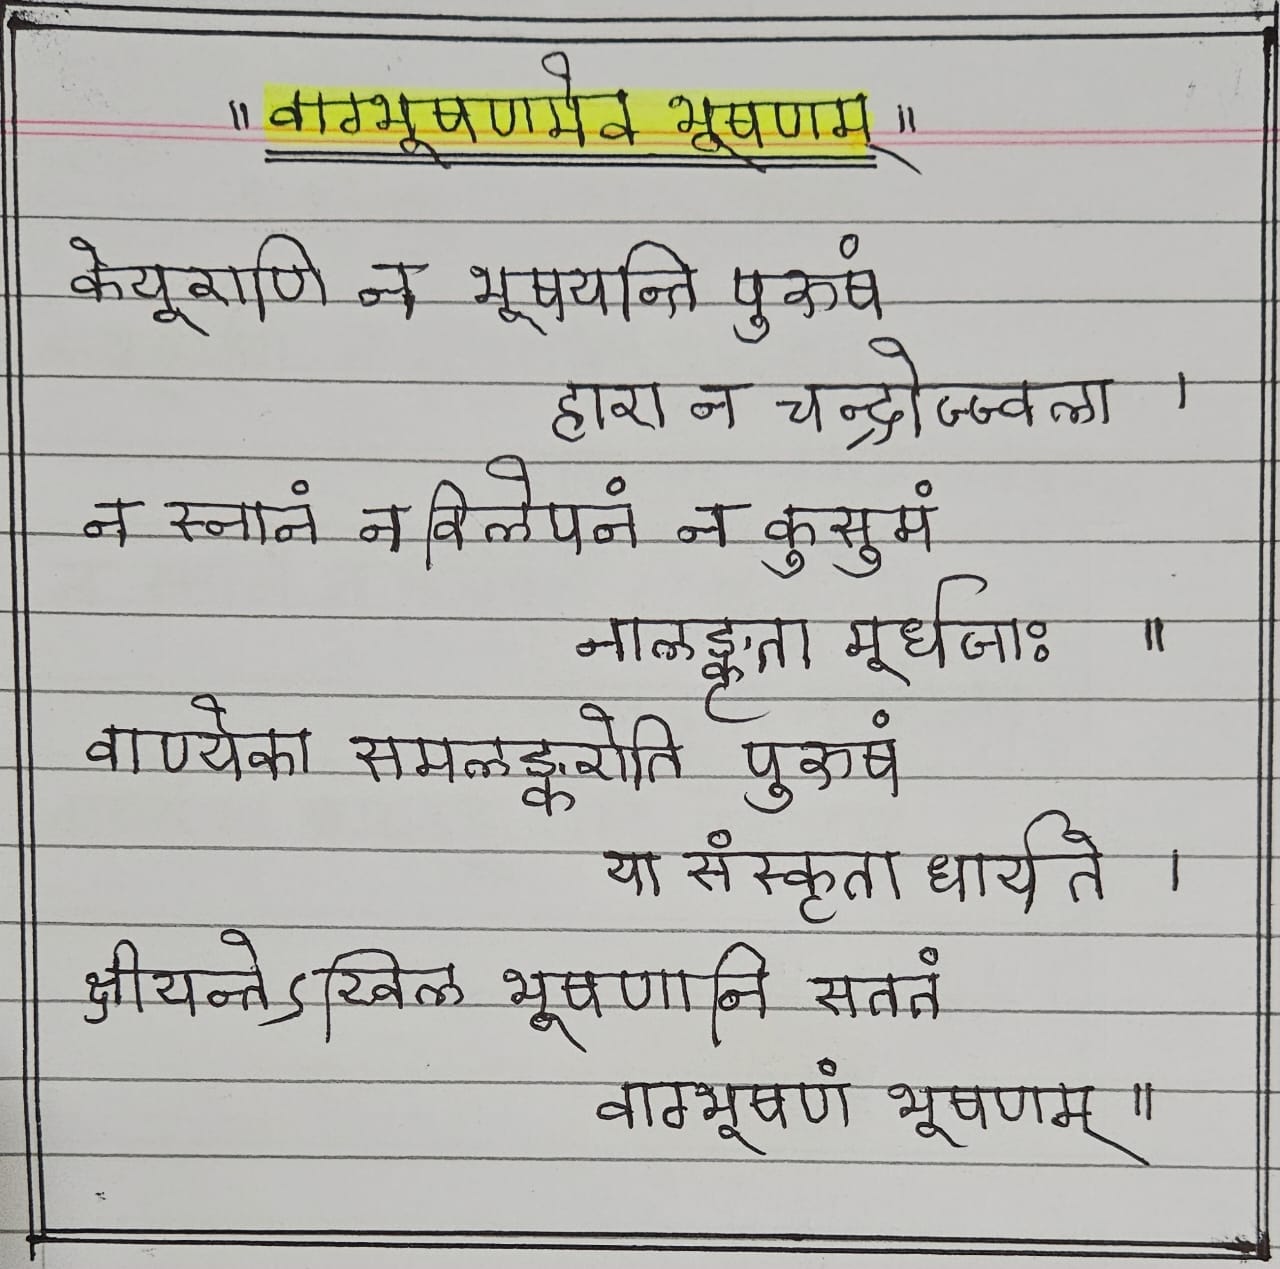 ॥ वाग्भूषणमेव भूषणम् ॥
केयूराणि न भूषयन्ति पुरुषं
हारा न चन्द्रोज्ज्वला ।
न स्नानं न विलेपनं न कुसुमं
नालङ्कृता मूर्धजाः ॥
वाण्येका समलङ्करोति पुरुषं
या संस्कृता धार्यते ।
क्षीयन्तेऽखिल भूषणानि सततं
वाग्भूषणं भूषणम् ॥